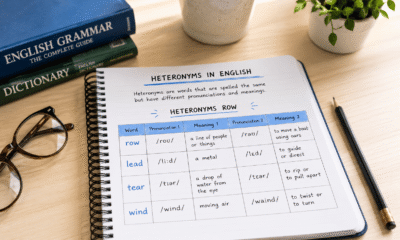 ENGLISH GRAMMAR
THE COMPLETE GUIDE
DICTIONARY
HETERONYMS IN ENGLISH
Heteronyms are words that are spelled the same
but have different pronunciations and meanings.
HETERONYMS ROW
Word Pronunciation 1 Meaning 1 Pronunciation 2 Meaning 2
row /roʊ/ a line of people or things /raʊ/ to move a boat using oars
lead /liːd/ a metal /lɛd/ to guide or direct
tear /tɪər/ a drop of water from the eye /tɛər/ to rip or to pull apart
wind /wɪnd/ moving air /waɪnd/ to twist or to turn